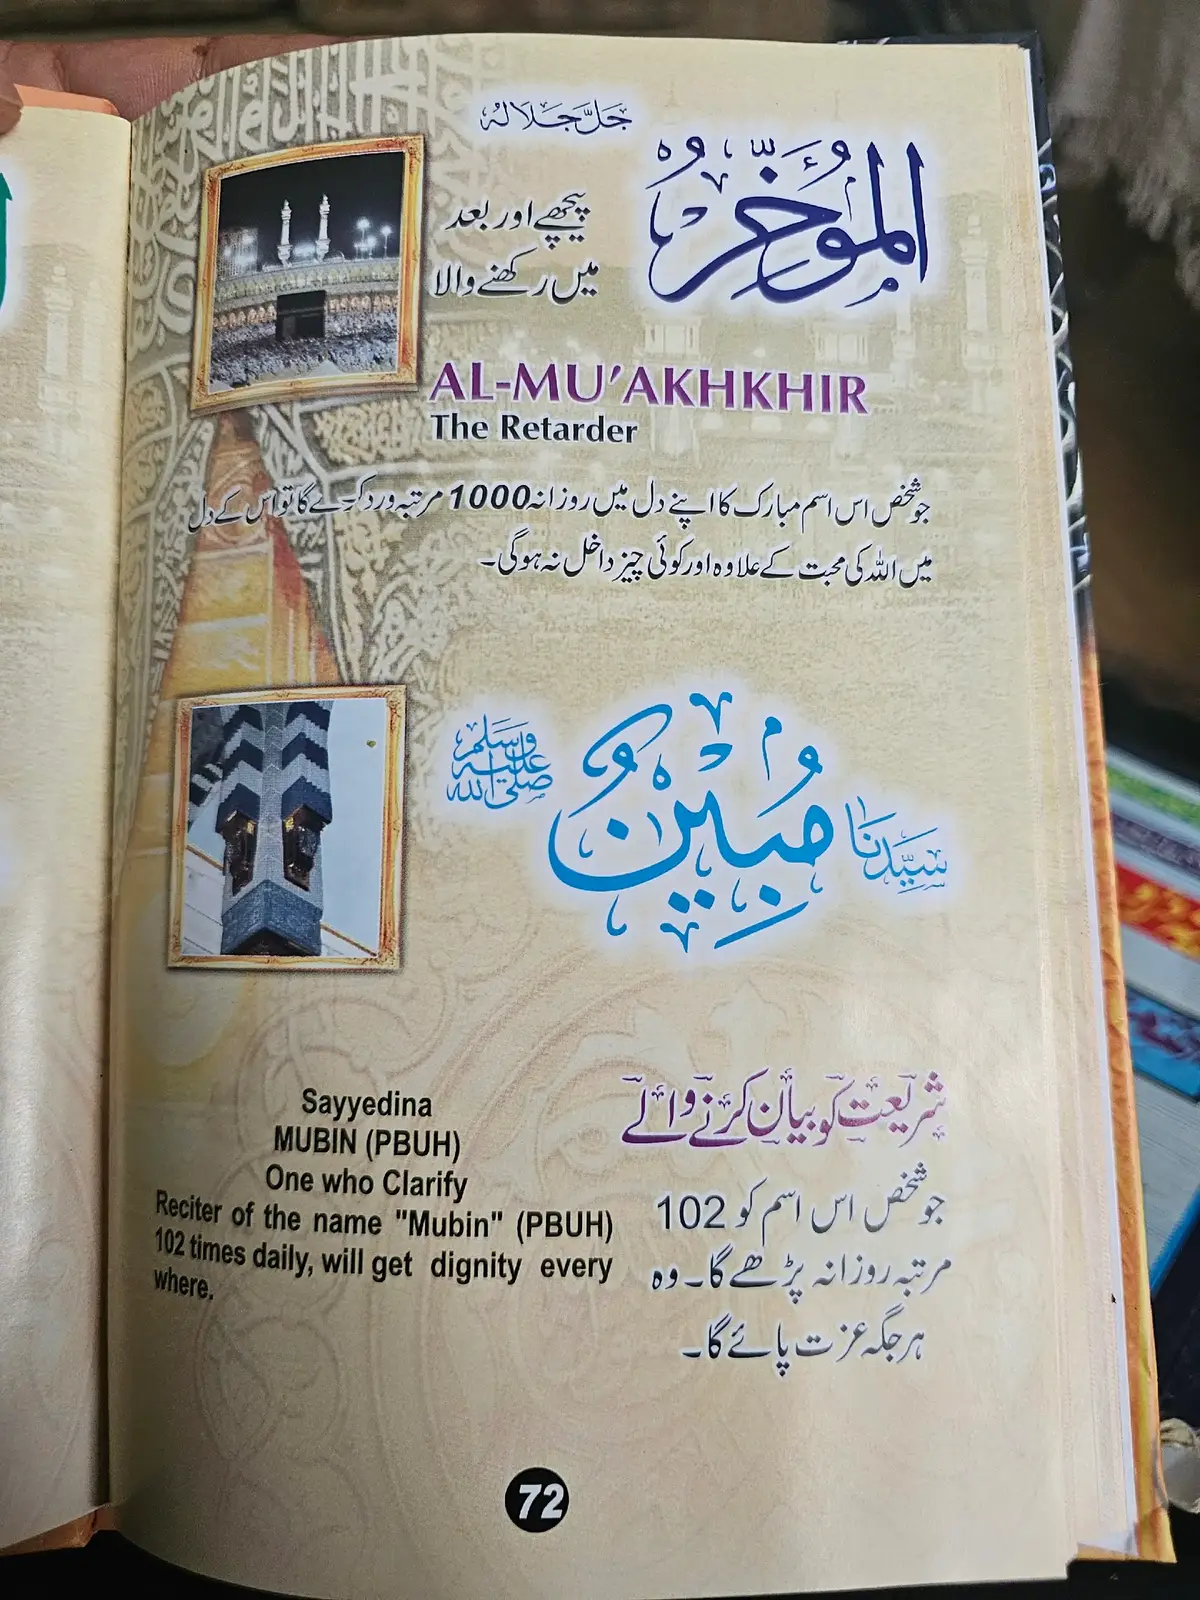 جَلَّ جَلَالَهُ
الْمُؤَخِّرُ
پیچھے اور بعد
میں رکھنے والا
AL-MU’AKHKHIR
The Retarder
جو شخص اس اسم مبارک کا اپنے دل میں روزانہ 1000 مرتبہ ورد کرے گا تو اس کے دل
میں اللہ کی محبت کے علاوہ اور کوئی چیز داخل نہ ہوگی۔
سَيِّدُنَا
مُبِيْنٌ
صلى الله عليه وسلم
شریعت کو بیان کرنے والے
جو شخص اس اسم کو 102
مرتبہ روزانہ پڑھے گا۔ وہ
ہر جگہ عزت پائے گا۔
Sayyedina
MUBIN (PBUH)
One who Clarify
Reciter of the name "Mubin" (PBUH)
102 times daily, will get dignity every
where.
72